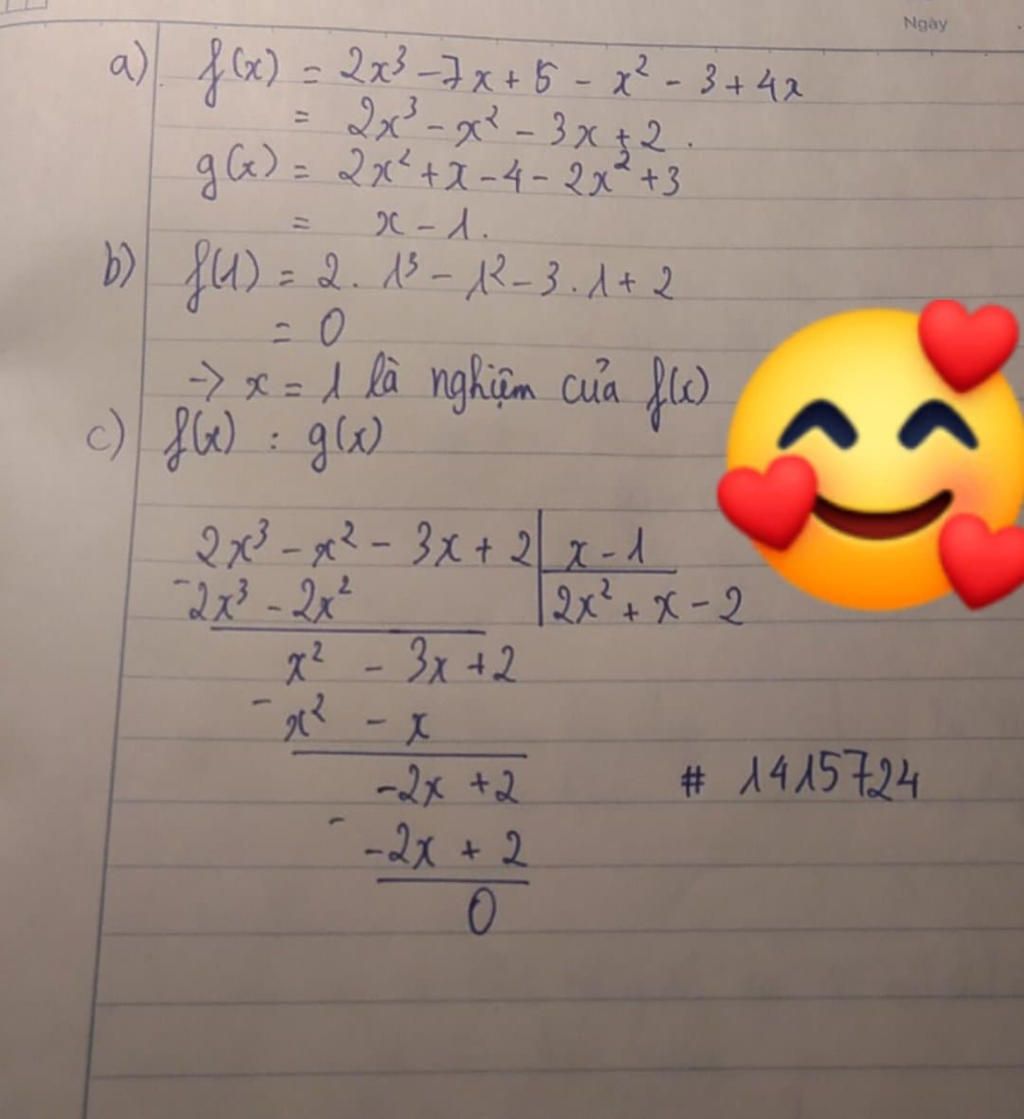 Ngày
a) f(x) = 2x³ - 7x + 5 - x² - 3 + 4x
= 2x³ - x² - 3x + 2.
g(x) = 2x² + x - 4 - 2x² + 3
= x - 1.
b) f(1) = 2 . 1³ - 1² - 3 . 1 + 2
= 0
-> x = 1 là nghiệm của f(x)
c) f(x) : g(x)
2x³ - x² - 3x + 2 | x - 1
- 2x³ - 2x² | 2x² + x - 2
x² - 3x + 2
- x² - x
-2x + 2
# 1415724
- -2x + 2
0